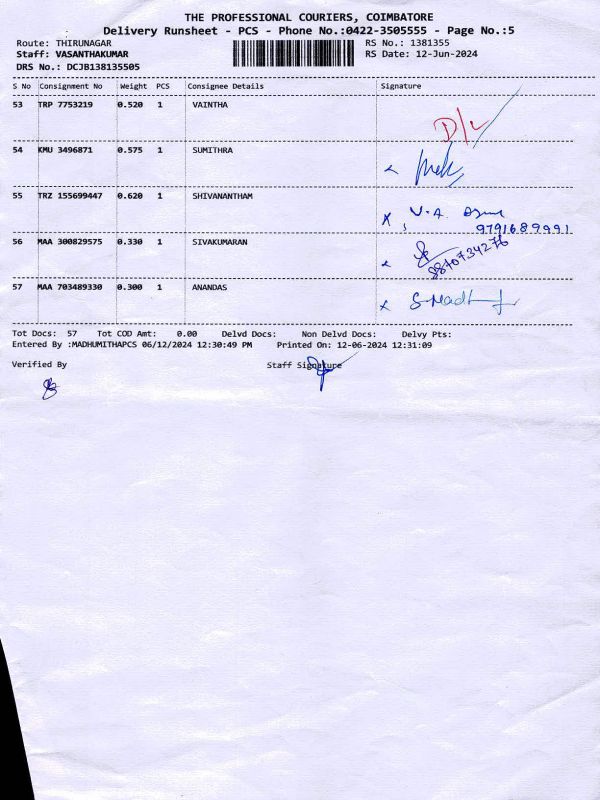 THE PROFESSIONAL COURIERS, COIMBATORE
Delivery Runsheet - PCS - Phone No.:0422-3505555 - Page No.:5
Route: THIRUNAGAR RS No.: 1381355
Staff: VASANTHAKUMAR RS Date: 12-Jun-2024
DRS No.: DCJB138135505
S No Consignment No Weight PCS Consignee Details Signature
53 TRP 7753219 0.520 1 VAINTHA
D/L
54 KMU 3496871 0.575 1 SUMITHRA
55 TRZ 155699447 0.620 1 SHIVANANTHAM
V.A.
9791689991
56 MAA 300829575 0.330 1 SIVAKUMARAN
8870734276
57 MAA 703489330 0.300 1 ANANDAS
Tot Docs: 57 Tot COD Amt: 0.00 Delvd Docs: Non Delvd Docs: Delvy Pts:
Entered By :MADHUMITHAPCS 06/12/2024 12:30:49 PM Printed On: 12-06-2024 12:31:09
Verified By Staff Signature